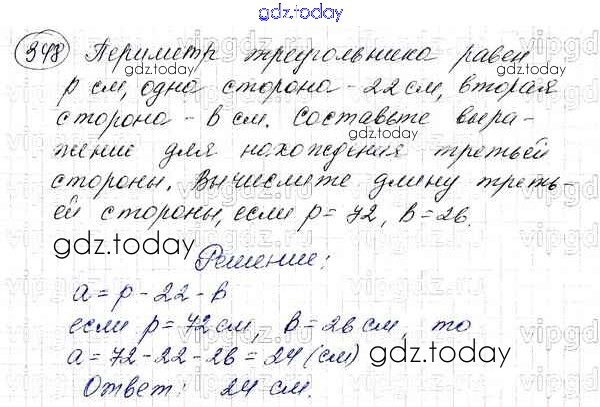 gdz.today
348 Периметр треугольника равен
gdz.today
p см, одна сторона - 22 см, вторая
сторона - b см. Составьте выра-
gdz.today
жение для нахождения третьей
стороны. Вычислите длину треть-
ей стороны, если p = 72, b = 26.
gdz.today
Решение:
a = p - 22 - b
если p = 72 см, b = 26 см, то
a = 72 - 22 - 26 = 24 (см)
gdz.today
Ответ: 24 см.